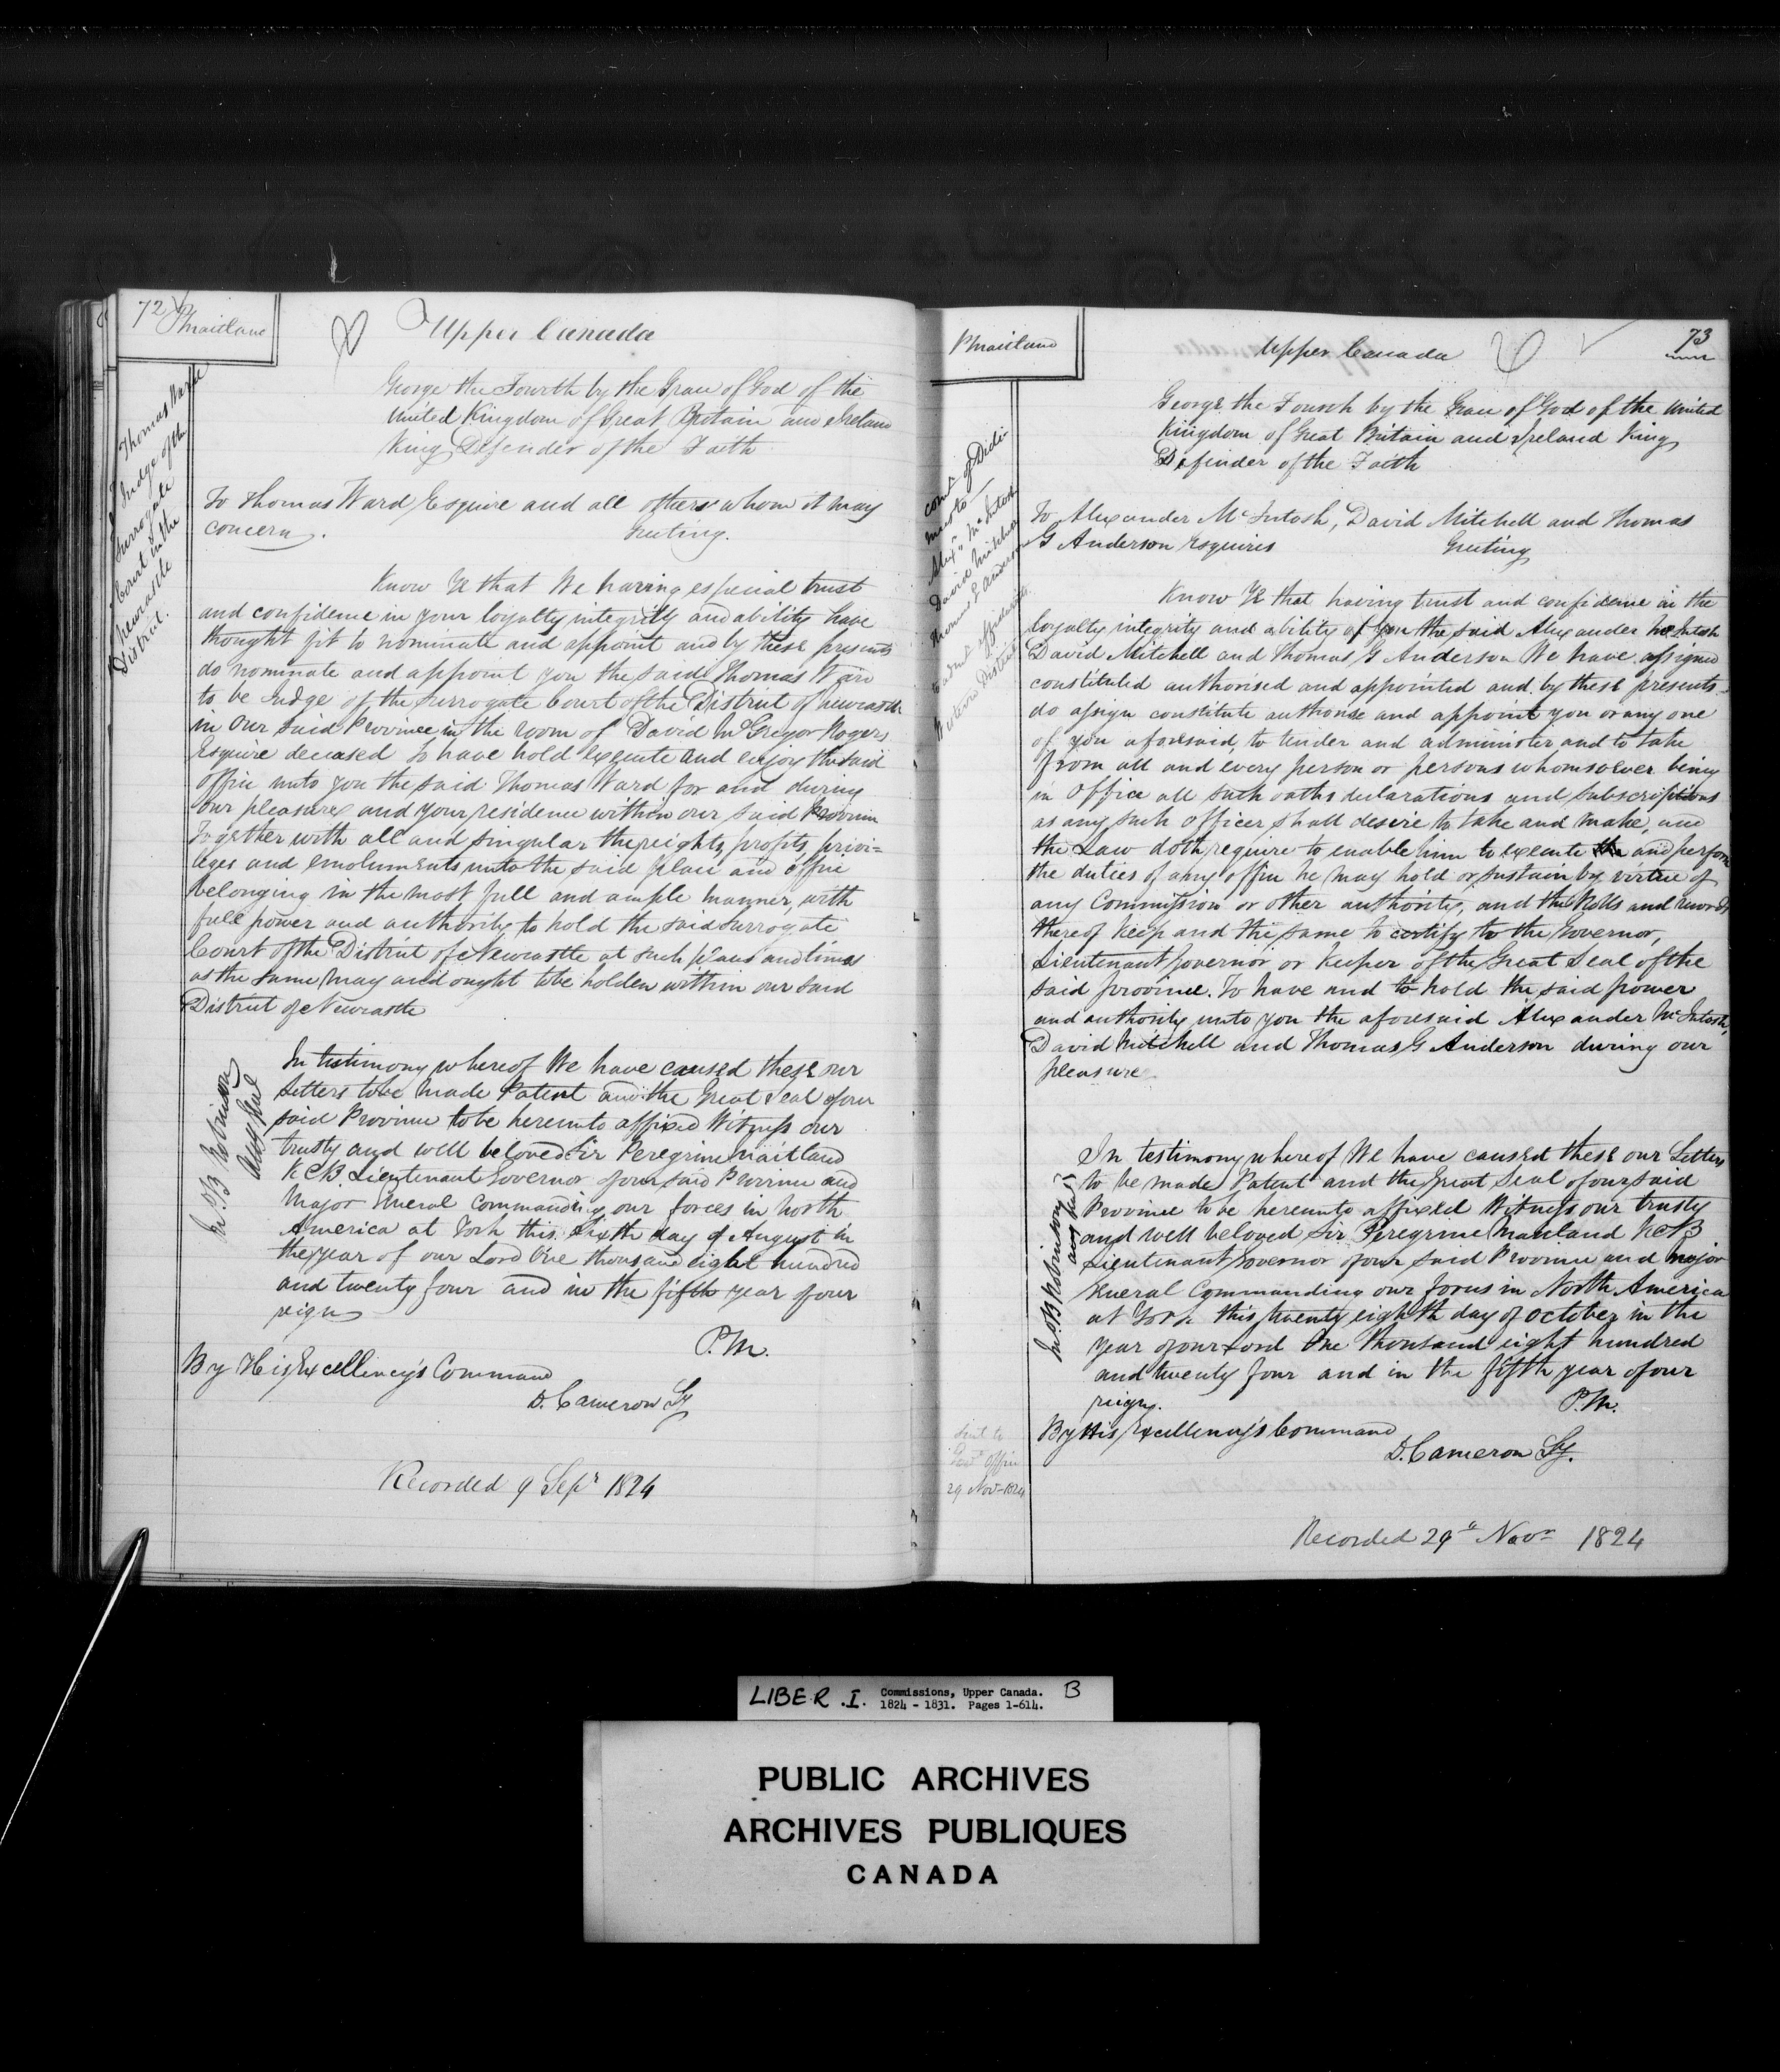 72
PMaitland
Upper Canada
George the Fourth by the Grace of God of the
United Kingdom of Great Britain and Ireland
King Defender of the Faith
Thomas Ward
Judge of the
Surrogate
Court in the
Newcastle
District.
To Thomas Ward Esquire and all others whom it may
concern. Greeting.
Know Ye that We having especial trust
and confidence in your loyalty integrity and ability have
thought fit to nominate and appoint and by these presents
do nominate and appoint you the said Thomas Ward
to be Judge of the Surrogate Court of the District of Newcastle
in Our said Province in the room of David McGregor Rogers
Esquire deceased To have hold execute and enjoy the said
Office unto you the said Thomas Ward for and during
our pleasure and your residence within our said Province
Together with all and singular the rights, profits, privi=
leges and emoluments unto the said place and office
belonging in the most full and ample manner, with
full power and authority to hold the said Surrogate
Court of the District of Newcastle at such places and times
as the same may and ought to be holden within our said
District of Newcastle
In testimony whereof We have caused these our
Letters to be made Patent and the Great Seal of our
said Province to be hereunto affixed Witness our
trusty and well beloved Sir Peregrine Maitland
K.C.B. Lieutenant Governor of our said Province and
Major General Commanding our forces in North
America at York this Sixth day of August in
the year of our Lord One thousand eight hundred
and twenty four and in the fifth year of our
reign
Jno. B Robinson
Atty Genl
P.M.
By His Excellency's Command
D. Cameron Sy
Recorded 9 Sepr 1824
PMaitland
Upper Canada
73
George the Fourth by the Grace of God of the United
Kingdom of Great Britain and Ireland King
Defender of the Faith
Comn of Dedi
mus to
Alexr McIntosh
David Mitchell
Thomas G Anderson
Western District
To Alexander McIntosh, David Mitchell and Thomas
G Anderson Esquires Greeting
Know Ye that having trust and confidence in the
loyalty integrity and ability of you the said Alexander McIntosh
David Mitchell and Thomas G Anderson We have assigned
constituted authorised and appointed and by these presents
do assign constitute authorise and appoint you or any one
of you aforesaid, to tender and administer and to take
from all and every person or persons whomsoever being
in Office all such oaths declarations and subscriptions
as any such Officer shall desire to take and make, and
the Law doth require to enable him to execute the and perform
the duties of any office he may hold or sustain by virtue of
any Commission or other authority, and the Rolls and records
thereof keep and the same to certify to the Governor,
Lieutenant Governor or Keeper of the Great Seal of the
said province. To have and to hold the said power
and authority unto you the aforesaid Alexander McIntosh,
David Mitchell and Thomas G Anderson during our
pleasure
In testimony whereof We have caused these our Letters
to be made Patent and the Great Seal of our said
Province to be hereunto affixed Witness our trusty
and well beloved Sir Peregrine Maitland KCB
Lieutenant Governor of our said Province and Major
General Commanding our forces in North America
at York this twenty eighth day of October in the
year of our Lord One thousand eight hundred
and twenty four and in the fifth year of our
reign.
Jno. B Robinson
Atty Genl
P.M.
By His Excellency's Command
D. Cameron Sy.
Sent to
Govt Office
29 Nov-1824
Recorded 29th Novr 1824
LIBER .I. Commissions, Upper Canada. B
1824 - 1831. Pages 1-614.
PUBLIC ARCHIVES
ARCHIVES PUBLIQUES
CANADA